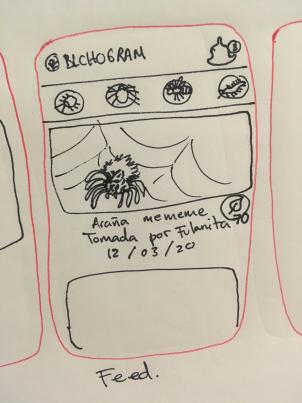 BICHOGRAM
Araña mememe
Tomada por Fulanita
70
12/03/20
Feed.